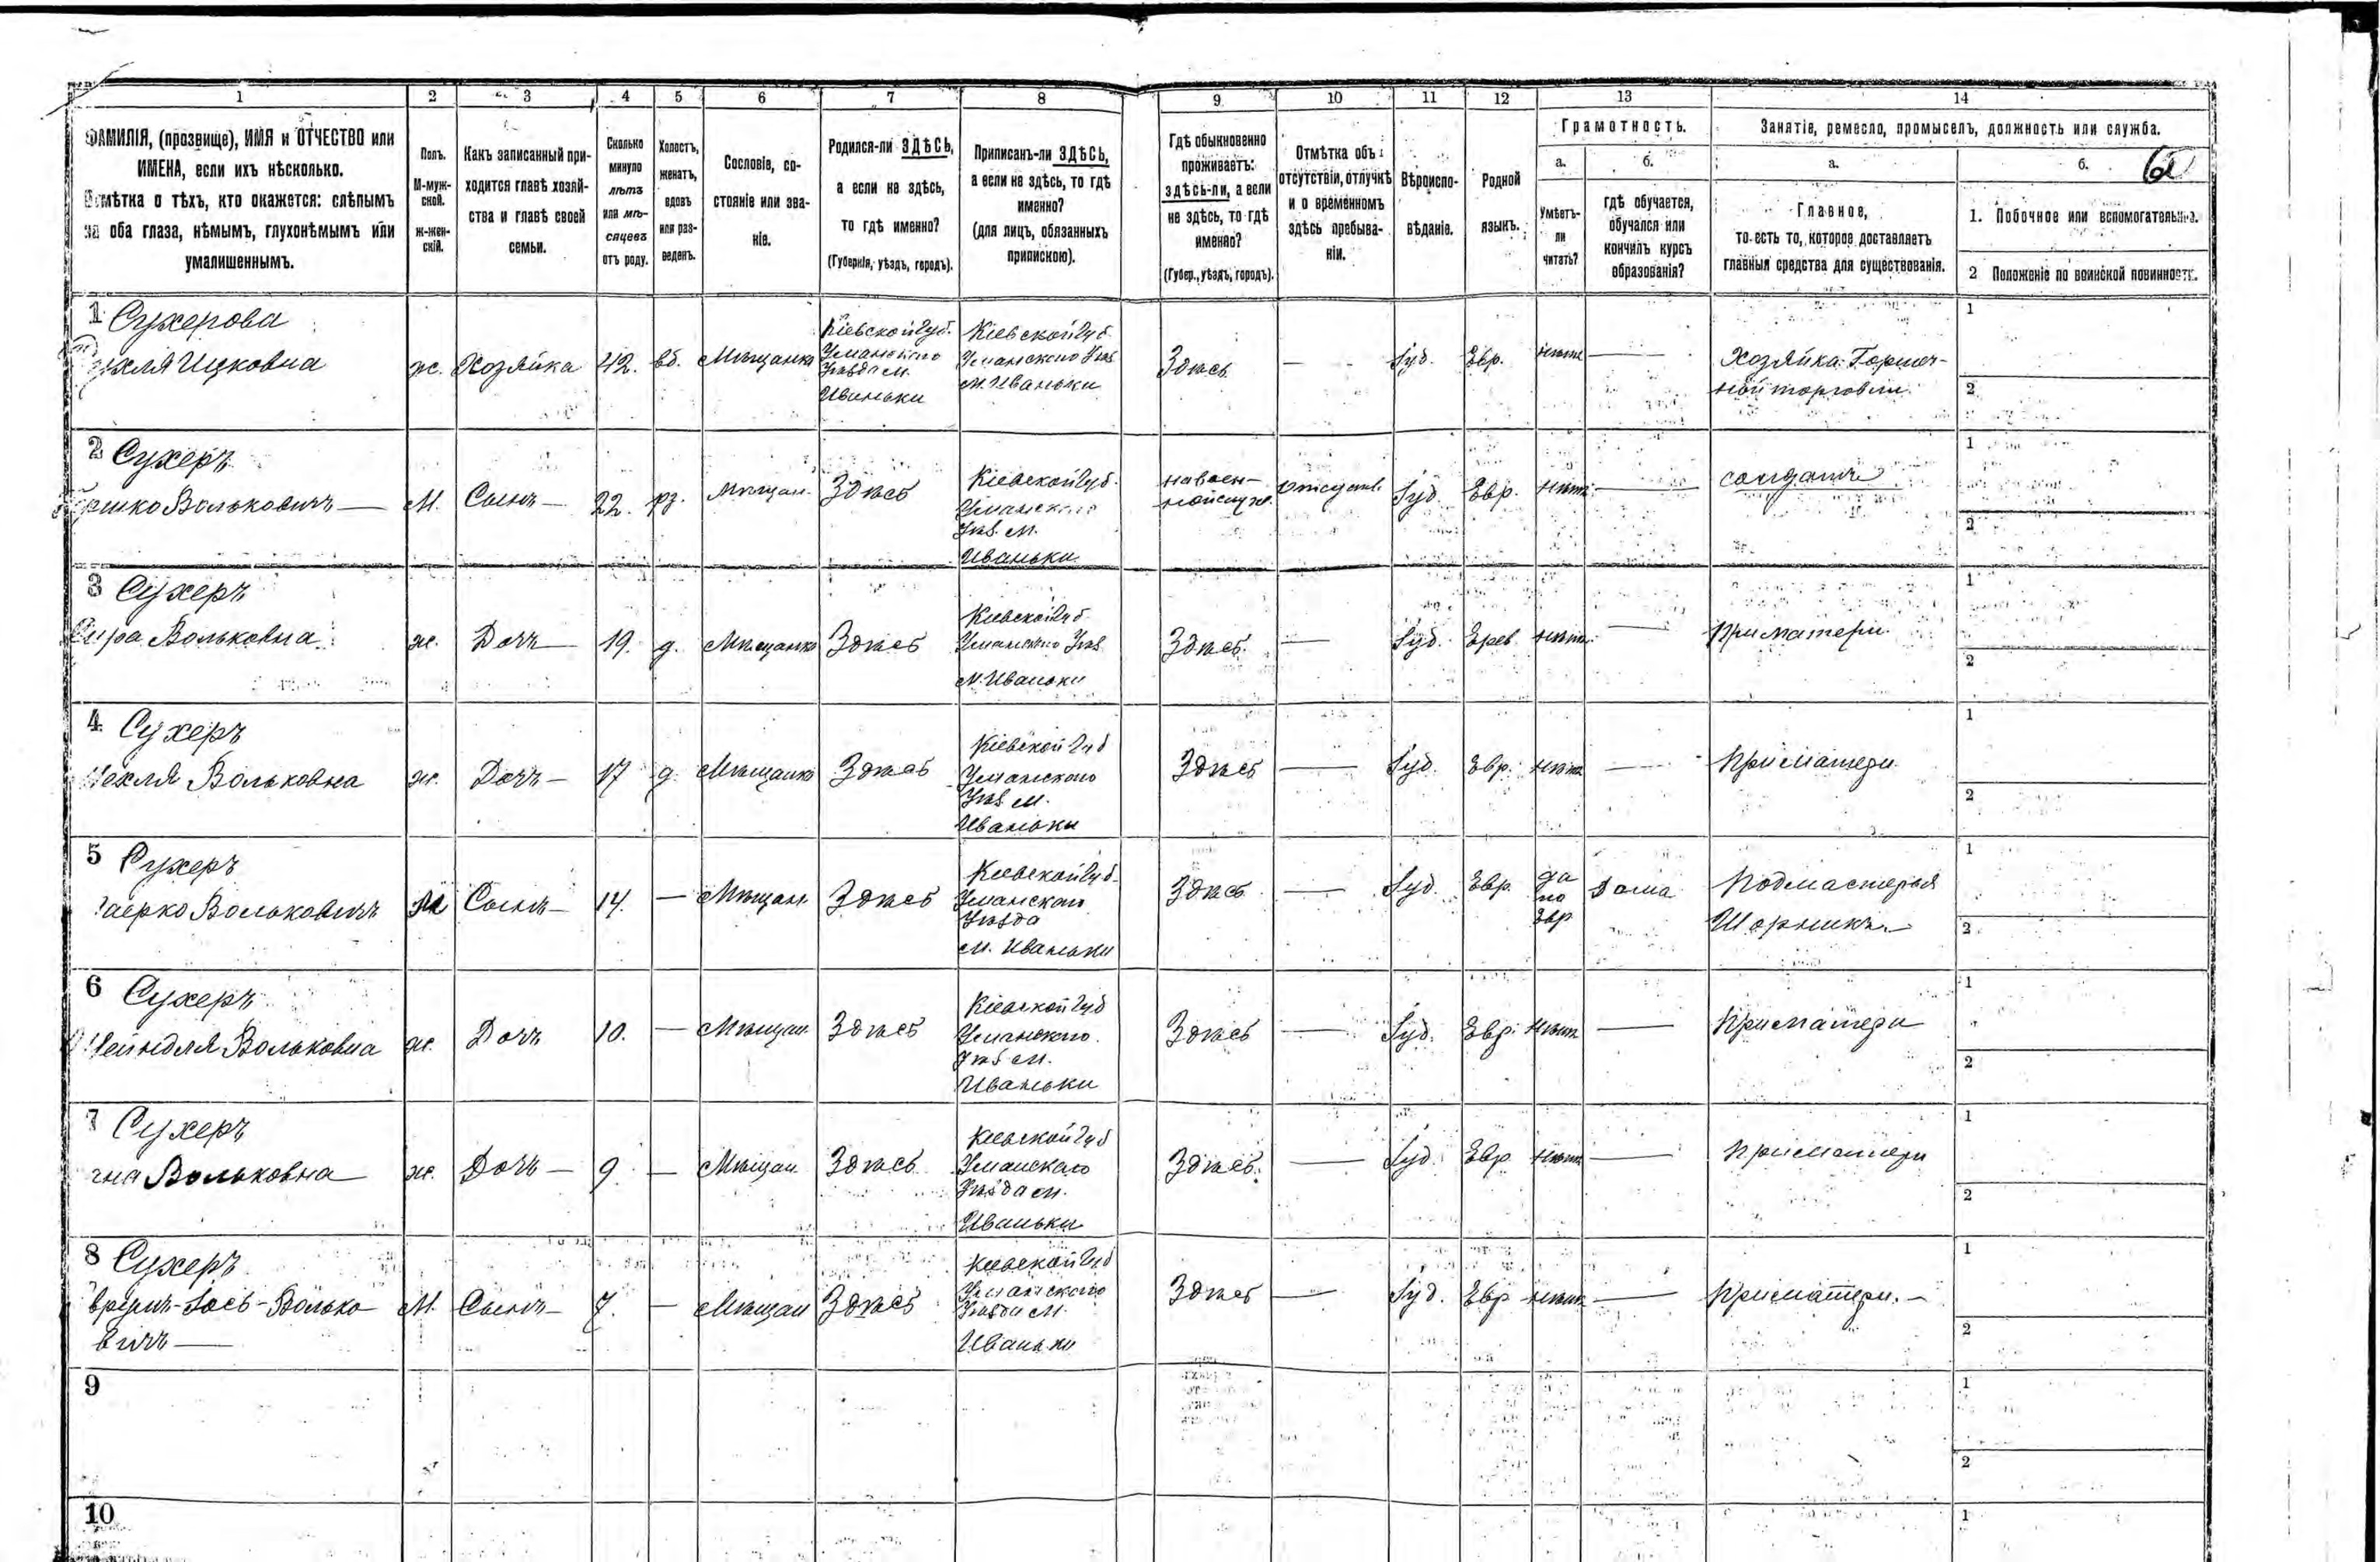 1 2 3 4 5 6 7 8 9 10 11 12 13 14
ФАМИЛІЯ, (прозвище), ИМЯ и ОТЧЕСТВО или
ИМЕНА, если ихъ нѣсколько.
Отмѣтка о тѣхъ, кто окажется: слѣпымъ
на оба глаза, нѣмымъ, глухонѣмымъ или
умалишеннымъ.
Полъ.
М-муж-
ской.
ж-жен-
скій.
Какъ записанный при-
ходится главѣ хозяй-
ства и главѣ своей
семьи.
Сколько
минуло
лѣтъ
или мѣ-
сяцевъ
отъ роду.
Холостъ,
женатъ,
вдовъ
или раз-
веденъ.
Сословіе, со-
стояніе или зва-
ніе.
Родился-ли ЗДѢСЬ,
а если не здѣсь,
то гдѣ именно?
(Губернія, уѣздъ, городъ).
Приписанъ-ли ЗДѢСЬ,
а если не здѣсь, то гдѣ
именно?
(для лицъ, обязанныхъ
припискою).
Гдѣ обыкновенно
проживаетъ:
здѣсь-ли, а если
не здѣсь, то гдѣ
именно?
(Губер., уѣздъ, городъ).
Отмѣтка объ
отсутствіи, отлучкѣ
и о временномъ
здѣсь пребыва-
ніи.
Вѣроиспо-
вѣданіе.
Родной
языкъ.
Грамотность.
а.
Умѣетъ-
ли
читать?
б.
гдѣ обучается,
обучался или
кончилъ курсъ
образованія?
Занятіе, ремесло, промыселъ, должность или служба.
а.
Главное,
то-есть то, которое доставляетъ
главныя средства для существованія.
б.
1. Побочное или вспомогательное.
2 Положеніе по воинской повинности.
1 Сухерова
Ицковна
ж.
Хозяйка
42.
вд.
Мѣщанка
Кіевской Губ.
Уманскаго
Уѣзда м.
Иваньки
Кіевской Губ.
Уманскаго Уѣз
м. Иваньки
Здѣсь
—
Іуд.
Евр.
нѣтъ
—
Хозяйка Горшеч-
ной торговли
1
2
2 Сухеръ
Гершко Вольковичъ —
М.
Сынъ —
22.
Мѣщан.
Здѣсь
Кіевской Губ.
Уманскаго
Уѣз. м.
Иваньки
на воен-
ной служ.
отсутст.
Іуд.
Евр.
нѣтъ
—
солдатъ
1
2
3 Сухеръ
Сура Вольковна
ж.
Дочь —
19.
д.
Мѣщанка
Здѣсь
Кіевской Губ
Уманскаго Уѣз
м. Иваньки
Здѣсь
—
Іуд.
Еврей
нѣтъ
—
При матери
1
2
4 Сухеръ
Вольковна
ж.
Дочь —
17
д.
Мѣщанка
Здѣсь
Кіевской Губ
Уманскаго
Уѣз м.
Иваньки
Здѣсь
—
Іуд.
Евр.
нѣтъ
—
При матери
1
2
5 Сухеръ
Вольковичъ
М
Сынъ —
14.
—
Мѣщан.
Здѣсь
Кіевской Губ.
Уманскаго
Уѣзда
м. Иваньки
Здѣсь
—
Іуд.
Евр.
да
по
Евр
Дома
Подмастерья
Шорникъ.
1
2
6 Сухеръ
Шейндля Вольковна
ж.
Дочь
10.
—
Мѣщан
Здѣсь
Кіевской Губ
Уманскаго
Уѣз м.
Иваньки
Здѣсь
—
Іуд.
Евр.
нѣтъ
—
При матери
1
2
7 Сухеръ
Вольковна
ж.
Дочь —
9.
—
Мѣщан
Здѣсь
Кіевской Губ
Уманскаго
Уѣзда м.
Иваньки
Здѣсь.
—
Іуд.
Евр
нѣтъ
—
При матери
1
2
8 Сухеръ
Іось-Волько
вичъ —
М.
Сынъ —
7.
—
Мѣщан
Здѣсь
Кіевской Губ
Уманскаго
Уѣзда м.
Иваньки
Здѣсь
—
Іуд.
Евр
нѣтъ
—
При матери. —
1
2
9
1
2
10
1